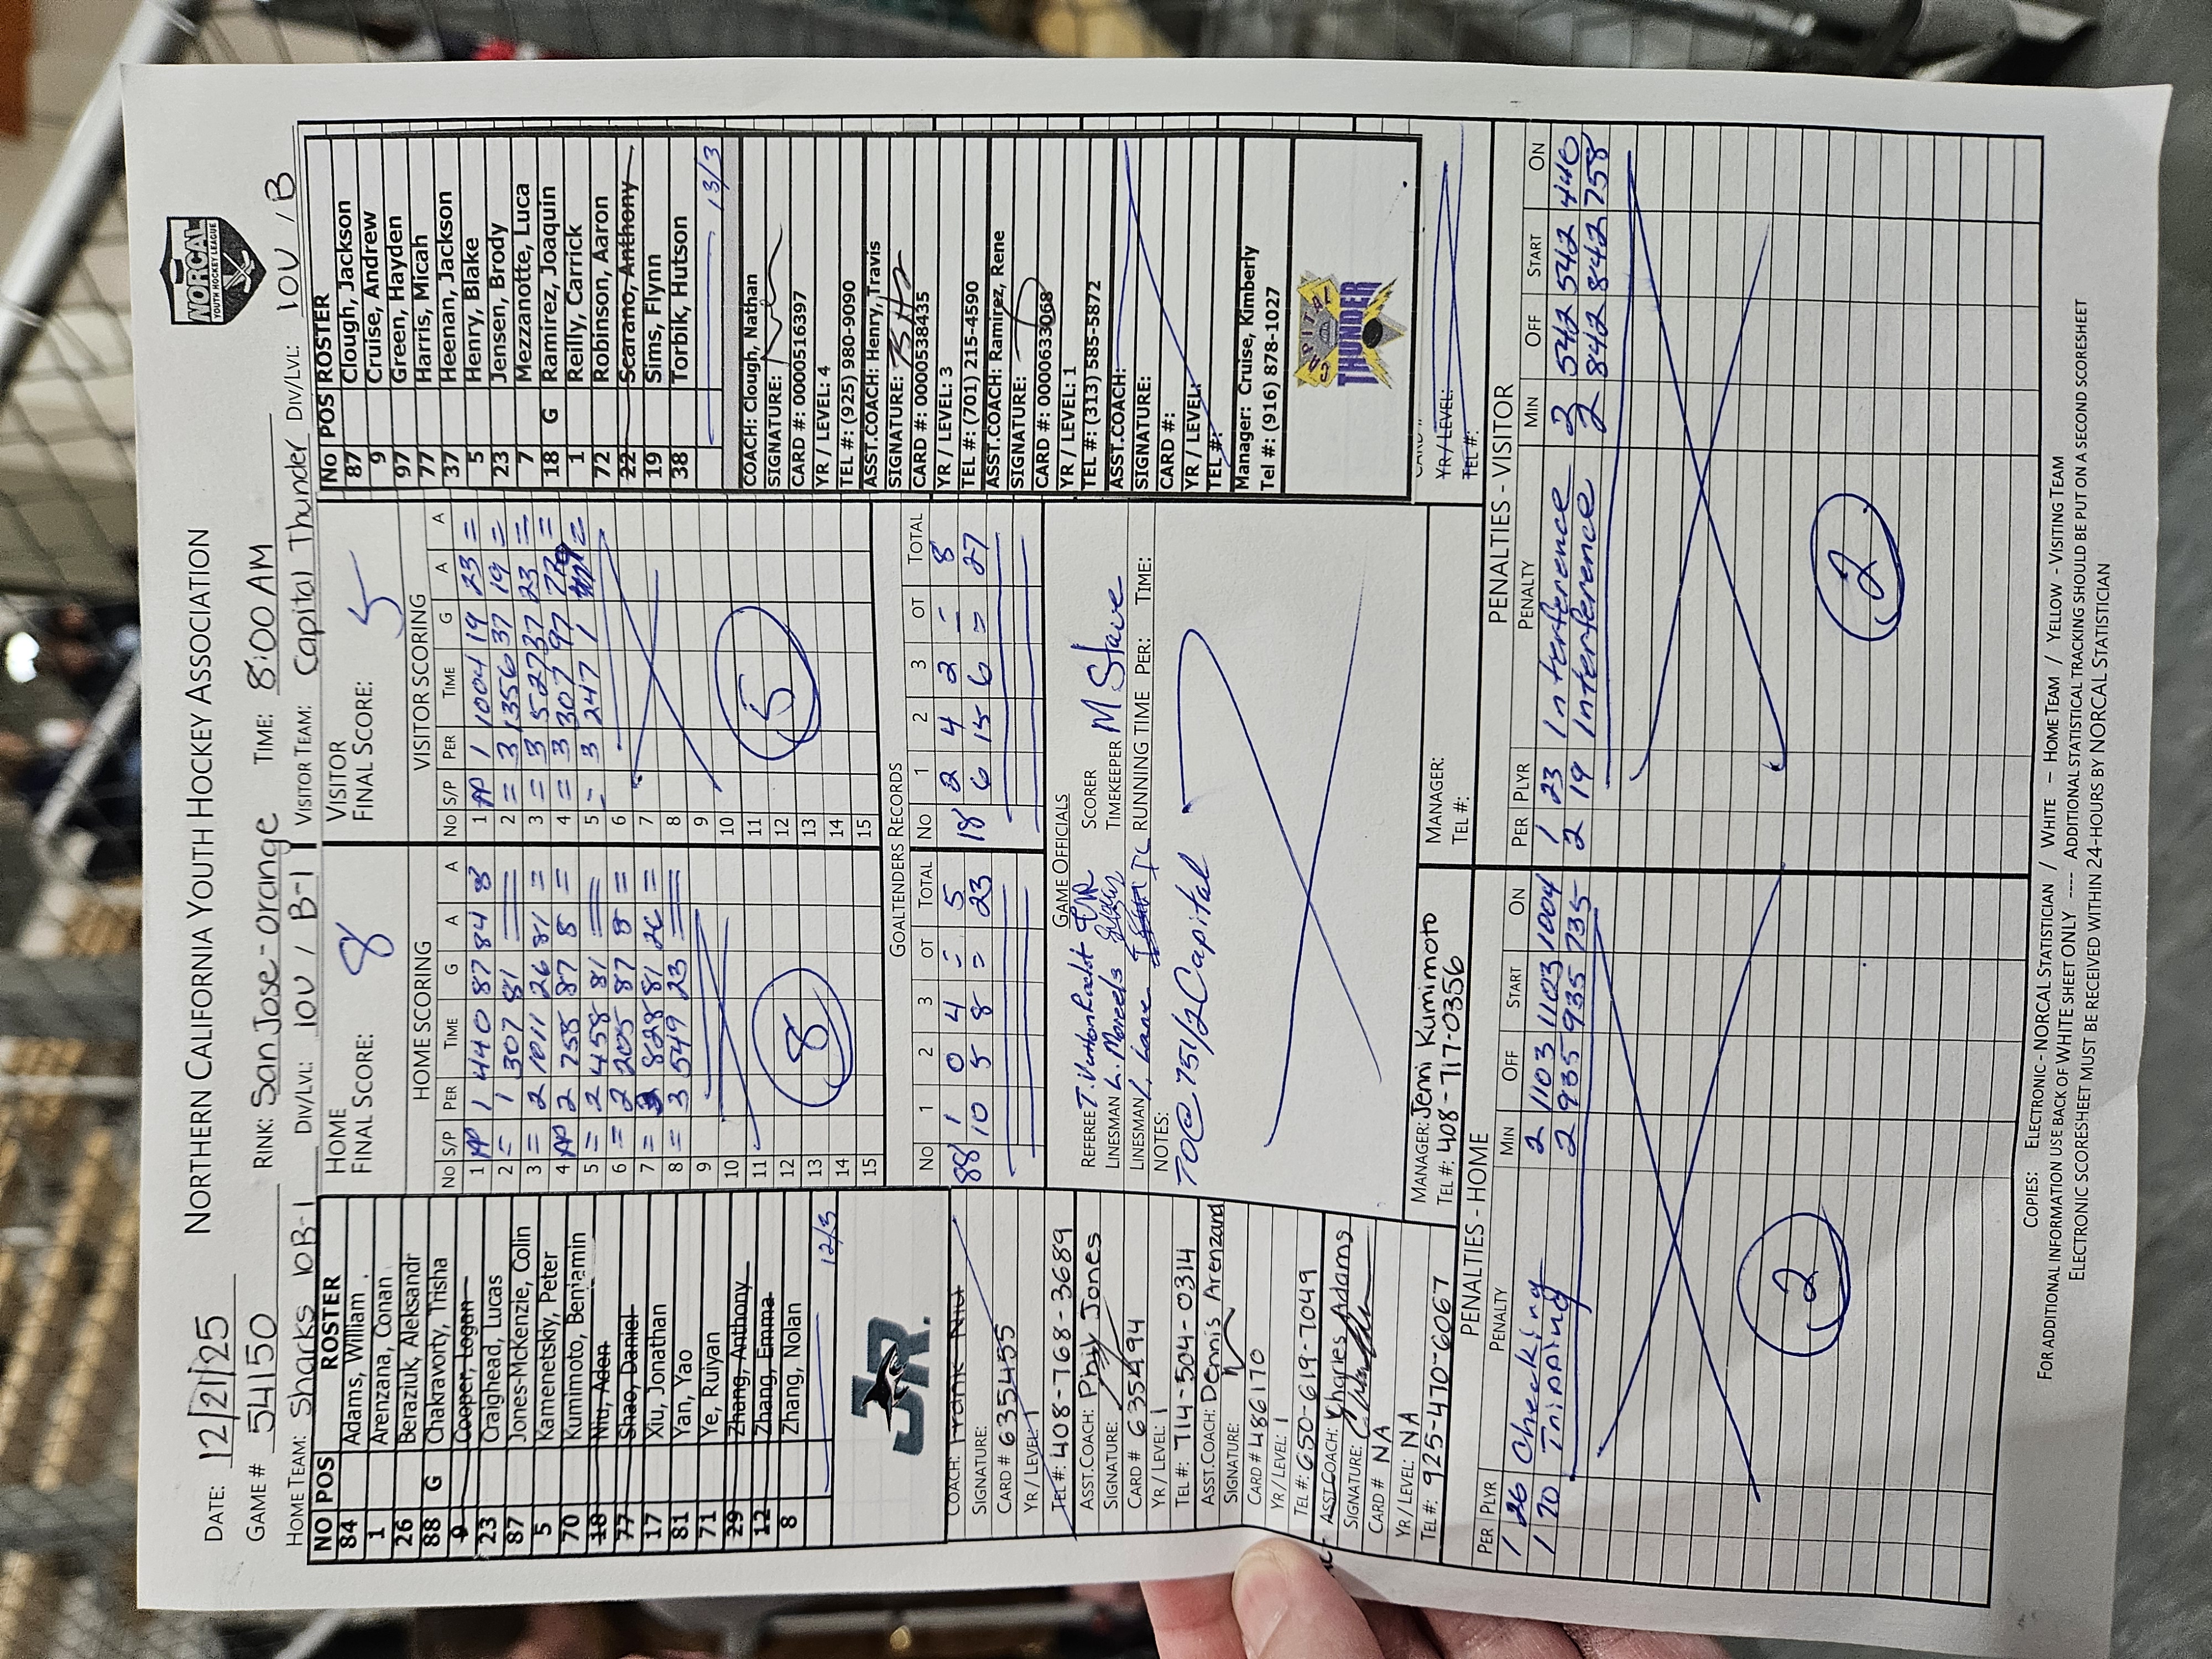 NORTHERN CALIFORNIA YOUTH HOCKEY ASSOCIATION
NORCAL
YOUTH HOCKEY LEAGUE
DATE: 12/21/25
GAME # 54150 RINK: San Jose - Orange TIME: 8:00 AM
HOME TEAM: Sharks 10B-1 DIV/LVL: 10U / B-1 VISITOR TEAM: Capital Thunder DIV/LVL: 10U / B
NO POS ROSTER
84 Adams, William
1 Arenzana, Conan
26 Beraziuk, Aleksandr
88 G Chakravorty, Trisha
9 Cooper, Logan
23 Craighead, Lucas
87 Jones-McKenzie, Colin
5 Kamenetskiy, Peter
70 Kumimoto, Benjamin
18 Niu, Aden
77 Shao, Daniel
17 Xiu, Jonathan
81 Yan, Yao
71 Ye, Ruiyan
29 Zhang, Anthony
12 Zhang, Emma
8 Zhang, Nolan
12/3
JR.
COACH: Frank Niu
SIGNATURE:
CARD # 635455
YR / LEVEL: 1
TEL #: 408-768-3689
ASST.COACH: Phily Jones
SIGNATURE:
CARD # 635494
YR / LEVEL: 1
TEL #: 714-504-0314
ASST.COACH: Dennis Arenzana
SIGNATURE:
CARD # 486170
YR / LEVEL: 1
TEL #: 650-619-7049
ASST.COACH: Charles Adams
SIGNATURE:
CARD # NA
YR / LEVEL: NA
TEL #: 925-470-6067
HOME
FINAL SCORE: 8
HOME SCORING
NO S/P PER TIME G A A
1 AP 1 440 87 84 8
2 = 1 307 81
3 = 2 1011 26 81 =
4 AP 2 758 87 8 =
5 = 2 458 81
6 = 2 205 87 8 =
7 = 3 828 81 26 =
8 = 3 549 23
9
10
11
12
13
14
15
8
VISITOR
FINAL SCORE: 5
VISITOR SCORING
NO S/P PER TIME G A A
1 AP 1 1004 19 23 =
2 = 3 1356 37 19 =
3 = 3 527 37 23 =
4 = 3 307 97 =
5 - 3 247 1 =
6
7
8
9
10
11
12
13
14
15
5
GOALTENDERS RECORDS
NO 1 2 3 OT TOTAL NO 1 2 3 OT TOTAL
88 1 0 4 - 5 18 2 4 2 - 8
10 5 8 = 23 6 15 6 = 27
GAME OFFICIALS
REFEREE SCORER
LINESMAN L. TIMEKEEPER M Stave
LINESMAN RUNNING TIME PER: TIME:
NOTES:
TO@ 751/2 Capital
MANAGER: Jenni Kumimoto
TEL #: 408-717-0356
MANAGER:
TEL #:
No POS ROSTER
87 Clough, Jackson
9 Cruise, Andrew
97 Green, Hayden
77 Harris, Micah
37 Heenan, Jackson
5 Henry, Blake
23 Jensen, Brody
7 Mezzanotte, Luca
18 G Ramirez, Joaquin
1 Reilly, Carrick
72 Robinson, Aaron
22 Scarano, Anthony
19 Sims, Flynn
38 Torbik, Hutson
13/3
COACH: Clough, Nathan
SIGNATURE:
CARD #: 0000516397
YR / LEVEL: 4
TEL #: (925) 980-9090
ASST.COACH: Henry, Travis
SIGNATURE:
CARD #: 0000538435
YR / LEVEL: 3
TEL #: (701) 215-4590
ASST.COACH: Ramirez, Rene
SIGNATURE:
CARD #: 0000633068
YR / LEVEL: 1
TEL #: (313) 585-5872
ASST.COACH:
SIGNATURE:
CARD #:
YR / LEVEL:
TEL #:
Manager: Cruise, Kimberly
Tel #: (916) 878-1027
CAPITAL
THUNDER
CARD #
YR / LEVEL:
TEL #:
PENALTIES - HOME
PER PLYR PENALTY MIN OFF START ON
1 26 Checking 2 1103 1103 1004
1 70 Tripping 2 935 935 735
2
PENALTIES - VISITOR
PER PLYR PENALTY MIN OFF START ON
1 23 Interference 2 542 542 440
2 19 Interference 2 842 842 758
2
COPIES: ELECTRONIC - NORCAL STATISTICIAN / WHITE - HOME TEAM / YELLOW - VISITING TEAM
FOR ADDITIONAL INFORMATION USE BACK OF WHITE SHEET ONLY ---- ADDITIONAL STATISTICAL TRACKING SHOULD BE PUT ON A SECOND SCORESHEET
ELECTRONIC SCORESHEET MUST BE RECEIVED WITHIN 24-HOURS BY NORCAL STATISTICIAN